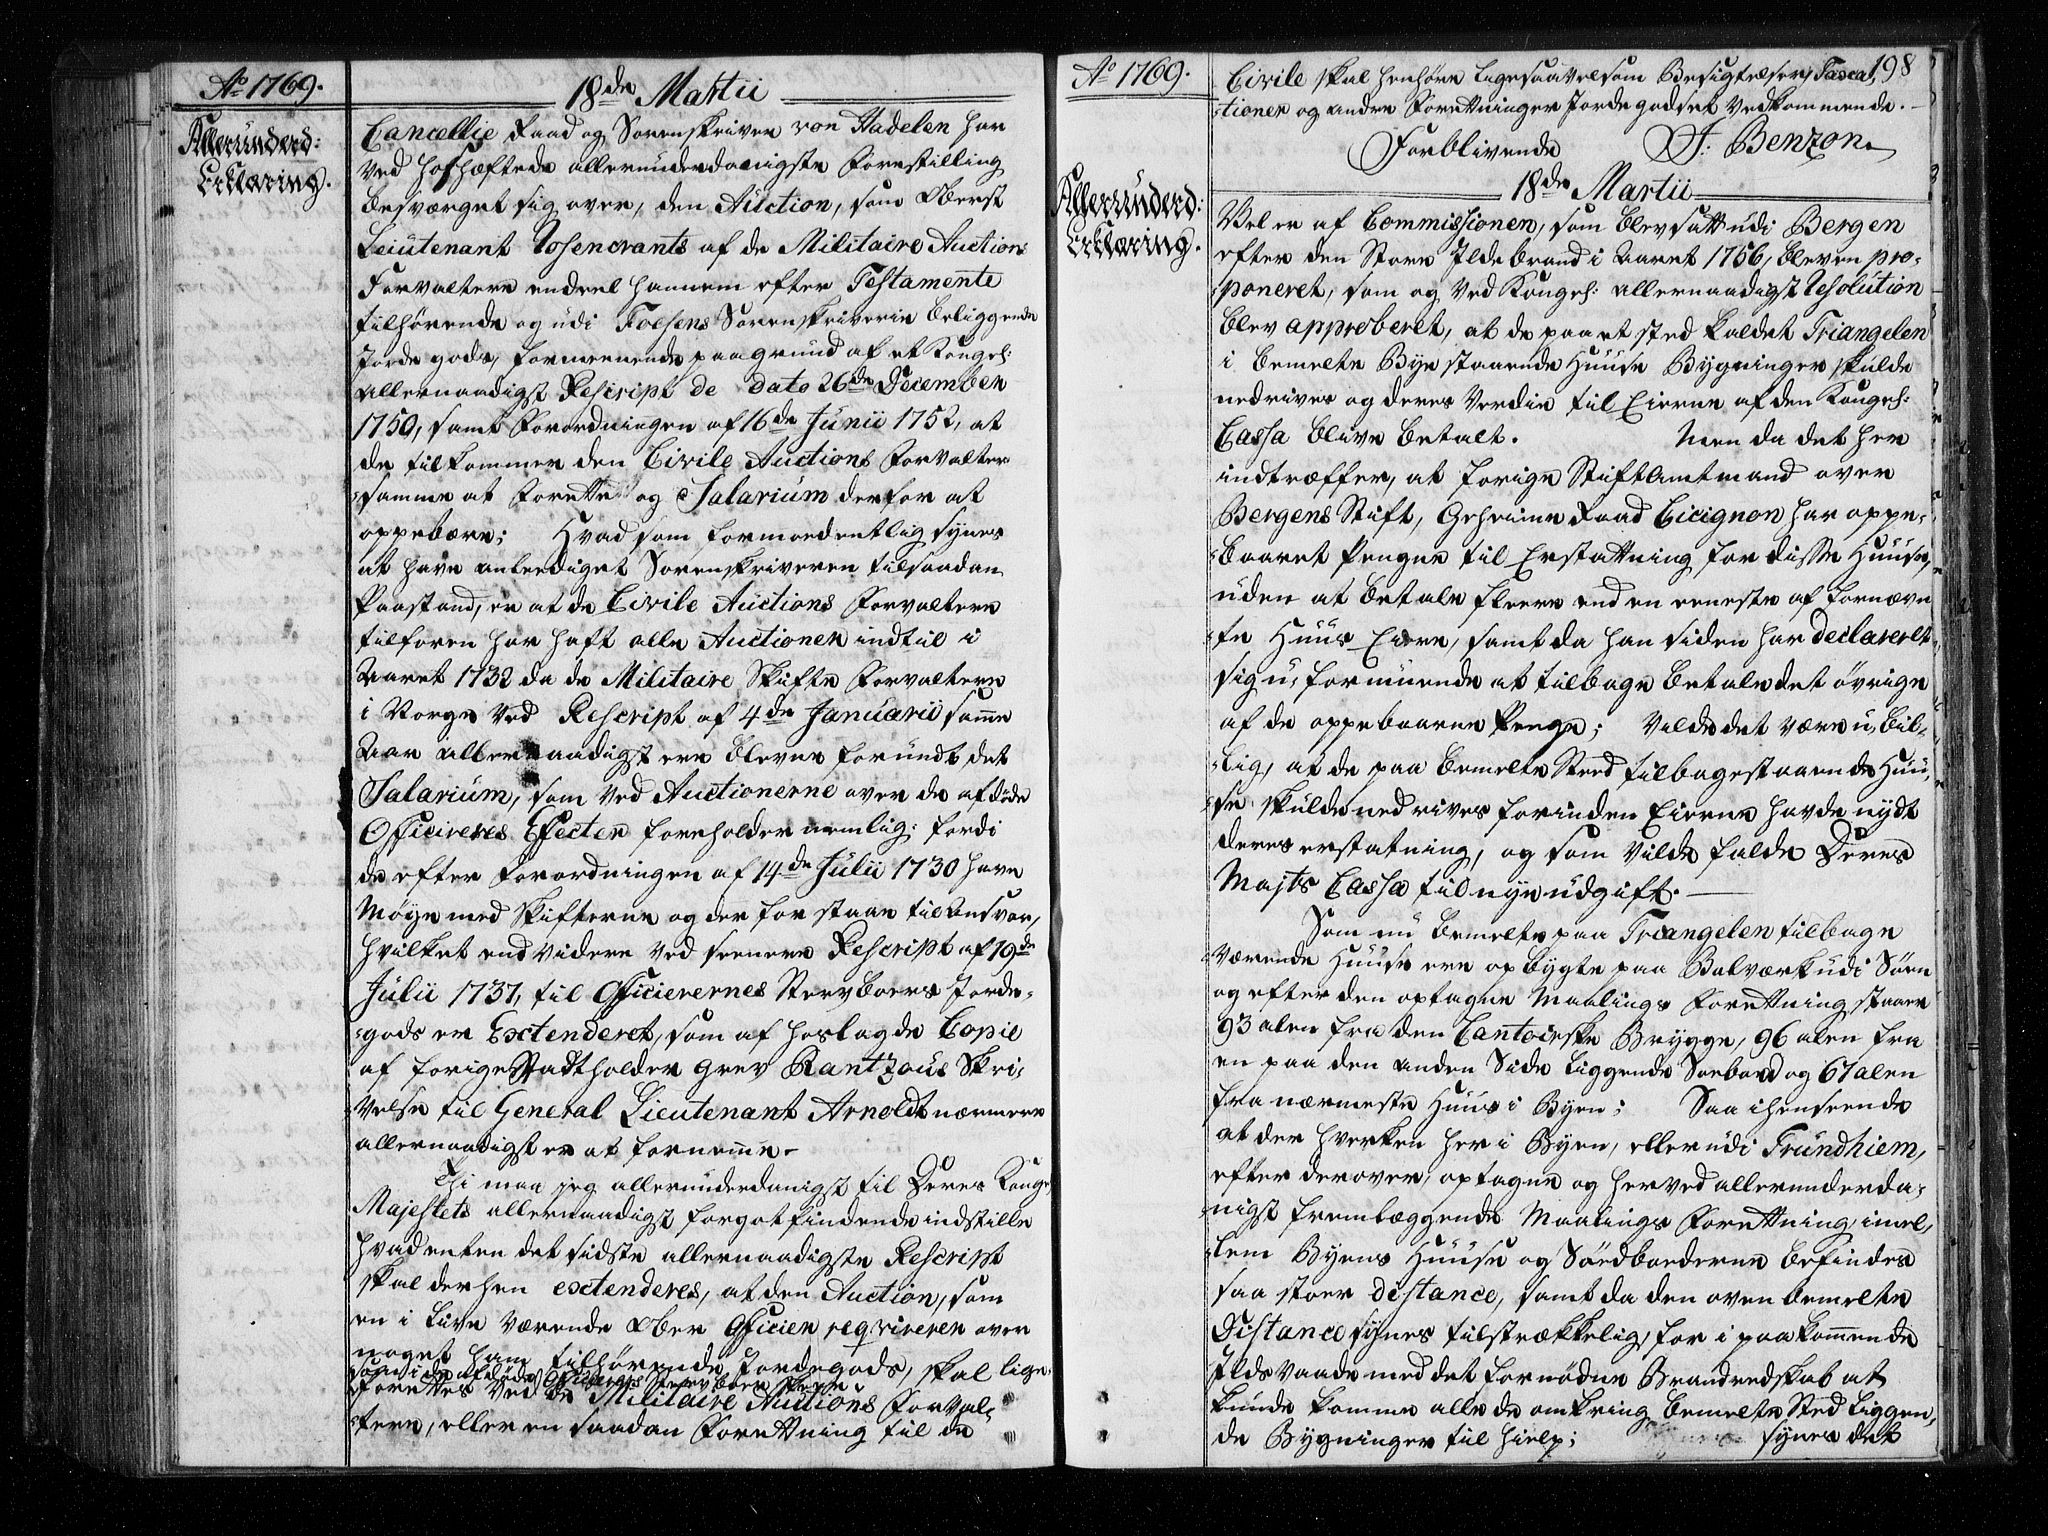 Ao 1769.
18de Martii
Allerunderd:
Erklæring.
Cancellie Raad og Sorenskriver von Hadelen har
ved hoshæftede allerunderdanigste Forestilling
besværget sig over, den Auction, som Oberst
Leiutenant Rosencrants af de Militaire Auctions
Forvaltere endeel hannem efter Testamente
tilhørende og udi Foesens Sorenskriverie beliggende
Jorde gods, formeenende paa grund af et Kongel:
allernaadigst Rescript de dato 26de December
1750, samt Forordningen af 16de Junii 1752, at
de tilkommer den Civile Auctions Forvalter
samme at forrette og Salarium derfor at
oppebære; Hvad som formodentlig synes
at have anleediget Sorenskriveren til saadan
Paastand, er at de Civile Auctions Forvaltere
tilforen har haft alle Auctioner indtil i
Aaret 1732 da de Militaire Skifte Forvaltere
i Norge ved Rescript af 4de Januarii samme
Aar allernaadigst ere bleven forundt det
Salarium, som ved Auctionerne over de afdøde
Officireres Effecter foreholder nemlig: fordi
de efter Forordningen af 14de Julii 1730 have
Møye med Skifterne og der for staae til Ansvar,
hvilket end videre ved seenere Rescript af 19de
Julii 1737, til Officierernes Stervboers Jorde-
gods er Exctenderet, som af hoslagde Copie
af forige Stadtholder Grev Rantzous Skri-
velse til General Lieutenant Arnoldt nærmere
allernaadigst er at fornemme.
Thi maa jeg allerunderdanigst til Deres Konge
Majestets allernaadigst forgotfindende indstille
hvad enten det sidste allernaadigste Rescript
skal derhen exctenderes, at den Auction, som
en i Live værende Ober Officier reqvirerer over
noget ham tilhørende Jordegods, skal lige-
som i de afdøde Officerers Stervboer skeer
forrettes ved de Militaire Auctions Forval-
tere, eller en saadan Forrettning til de
Ao 1769.
198
Civile skal henhøre ligesaavelsom Besigtelser, Taxa-
tioner og andre Forrettninger Jordegodset vedkommende.
Forblivende J: Benzon.
18de Martii
Allerunderd:
Erklæring.
Vel er af Commissionen, som blev satt udi Bergen
efter den Store Ildebrand i Aaret 1756, bleven pro-
poneret, som og ved Kongel: allernaadigst Resolution
blev approberet, at de paa et sted kaldet Triangelen
i bemelte Bye staaende Huuse Bygninger skulde
nedrives og deres Verdie til Eierne af den Kongel:
Cassa blive betalt. Men da det her
indtræffer, at forige Stiftamtmand over
Bergens Stift, Geheime Raad Cicignon har oppe-
baaret Pengene til Erstattning for disse Huuse,
uden at betale fleere end en eeneste af fornævn-
te Huus Eiere, samt da han siden har declareret
sig u-formuende at tilbage betale det øvrige
af de oppebaarne Penge; Vilde det være u-bil-
lig, at de paa bemelte Sted tilbagestaaende Huu-
se skulde nedrives forinden Eierne havde nydt
deres erstatning, og som vilde falde Deres
Majts Cassa til nye udgift.
Som nu bemelte paa Triangelen tilbage
værende Huuse ere opbygte paa Bolværk udi Søen
og efter den optagne Maalings Forrettning staaer
93 alen fra den Cantoirske Brygge, 96 alen fra
en paa den anden Side liggende Søeboed og 67 alen
fra nærmeste Huus i Byen; Saa i henseende
at der hverken her i Byen, eller udi Trundhiem,
efter derover, optagne og herved allerunderda-
nigst fremlæggende Maalings Forrettning imel-
lem Byens Huuse og Søeboederne befindes
saa stoer distance, samt da den oven bemelte
Distance synes tilstrækkelig, for i paakommende
Ilds vaade med det fornødne Brandredskab at
kunde komme alle de omkring bemelte Sted liggen-
de Bygninger til hielp; synes det